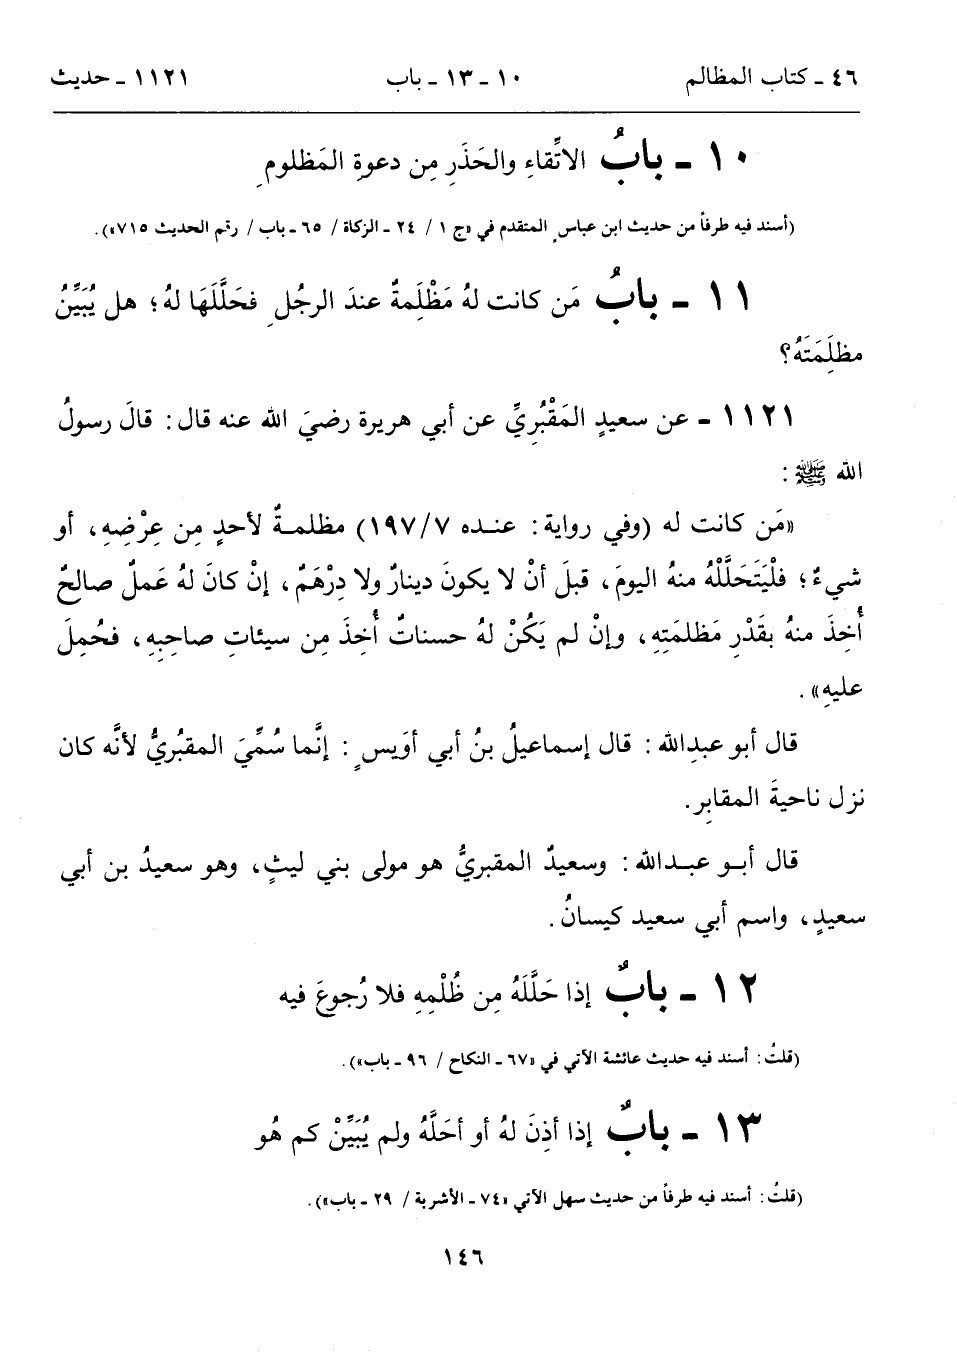 ٤٦ ـ كتاب المظالم ١٠ ـ ١٣ ـ باب ١١٢١ ـ حديث
١٠ ـ بابُ الاتِّقاءِ والحَذَرِ مِن دعوةِ المَظلومِ
(أسند فيه طرفاً من حديث ابن عباسٍ المتقدم في «ج ١ / ٢٤ ـ الزكاة / ٦٥ ـ باب / رقم الحديث ٧١٥»).
١١ ـ بابُ مَن كانت لهُ مَظْلِمةٌ عندَ الرجُلِ فحَلَّلَهَا لهُ؛ هل يُبَيِّنُ
مظلِمَتَهُ؟
١١٢١ ـ عن سعيدٍ المَقْبُرِيِّ عن أبي هريرة رضيَ الله عنه قال: قالَ رسولُ
الله ﷺ:
«مَن كانت له (وفي رواية: عنده ١٩٧/٧) مظلمةٌ لأحدٍ مِن عِرْضِهِ، أو
شيءٌ؛ فلْيَتَحَلَّلْهُ منهُ اليومَ، قبلَ أنْ لا يكونَ دينارٌ ولا دِرْهَمٌ، إنْ كانَ لهُ عَملٌ صالحٌ
أُخِذَ منهُ بقَدْرِ مَظلمَتِهِ، وإنْ لم يَكُنْ لهُ حسناتٌ أُخِذَ مِن سيئاتِ صاحِبِهِ، فحُمِلَ
عليهِ».
قال أبو عبدِالله: قال إسماعيلُ بنُ أبي أوَيسٍ: إنَّما سُمِّيَ المقبُريُّ لأنَّه كان
نزل ناحيةَ المقابِرِ.
قال أبو عبدالله: وسعيدٌ المقبريُّ هو مولى بني ليثٍ، وهو سعيدُ بن أبي
سعيدٍ، واسم أبي سعيد كيسانُ.
١٢ ـ بابٌ إذا حَلَّلَهُ مِن ظُلْمِهِ فلا رُجوعَ فيه
(قلتُ: أسند فيه حديث عائشة الآتي في «٦٧ ـ النكاح / ٩٦ ـ باب»).
١٣ ـ بابٌ إذا أذِنَ لهُ أو أحَلَّهُ ولم يُبَيِّنْ كم هُو
(قلتُ: أسند فيه طرفاً من حديث سهل الآتي «٧٤ ـ الأشربة / ٢٩ ـ باب»).
١٤٦